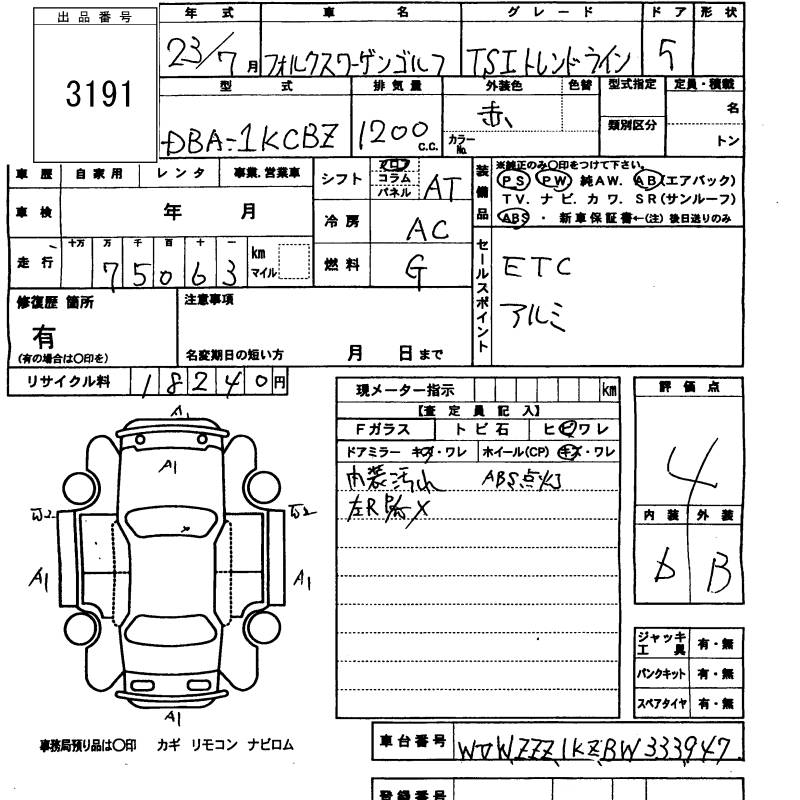 出品番号
3191
年式 車名 グレード ドア 形状
23/7月 フォルクスワーゲンゴルフ TSIトレンドライン 5
型式 排気量 外装色 色替 型式指定 定員・積載
DBA-1KCBZ 1200 C.C. 赤 カラーNo. 類別区分 名 トン
車歴 自家用 レンタ 事業.営業車
シフト フロア コラム パネル AT
装備品 ※純正のみ〇印をつけて下さい。
PS PW 純AW. AB(エアバック)
TV. ナビ. カワ. SR(サンルーフ)
ABS ・ 新車保証書←(注) 後日送りのみ
車検 年 月
冷房 AC
走行 十万 万 千 百 十 一
75063 km マイル
燃料 G
セールスポイント ETC
アルミ
修復歴 箇所
有
(有の場合は〇印を)
注意事項
名変期日の短い方 月 日まで
リサイクル料 18240円
現メーター指示 km
評価点
4
【査定員記入】
Fガラス トビ石 ヒビワレ
ドアミラー キズ・ワレ ホイール(CP) キズ・ワレ
内装汚れ ABS点灯
内装 外装
D B
A1
A1
A1 A1
A1
ジャッキ工具 有・無
パンクキット 有・無
スペアタイヤ 有・無
事務局預り品は〇印 カギ リモコン ナビロム
車台番号 WVWZZZ1KZBW333947
登録番号